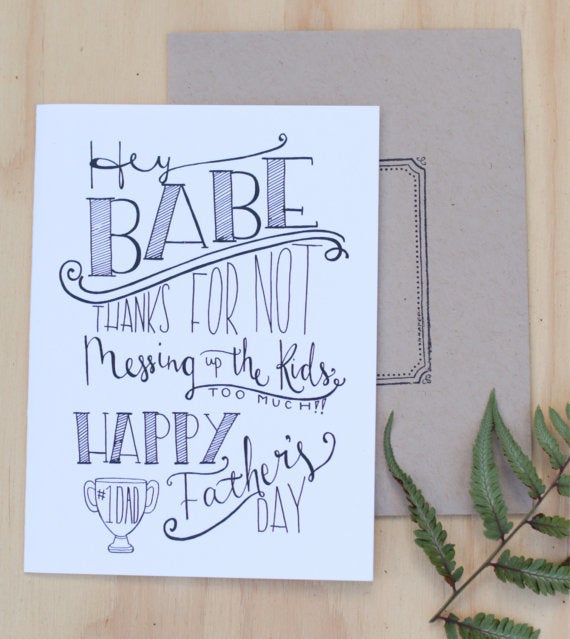 Hey
BABE
THANKS FOR NOT
Messing up the Kids
TOO MUCH!!
HAPPY
Father's
#1 DAD
DAY